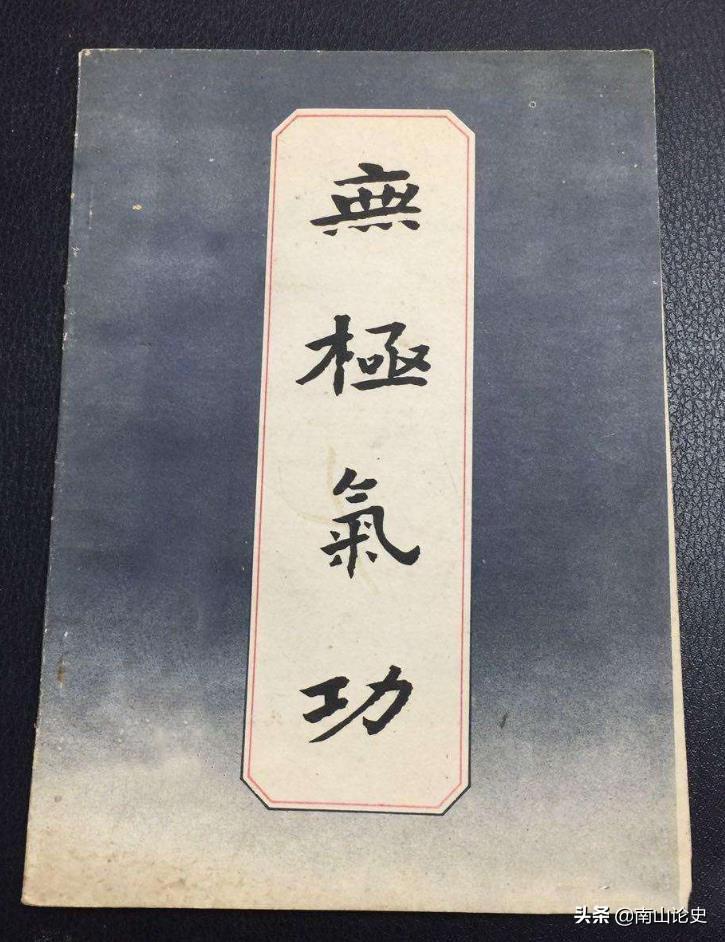 無極氣功
头条 @南山论史